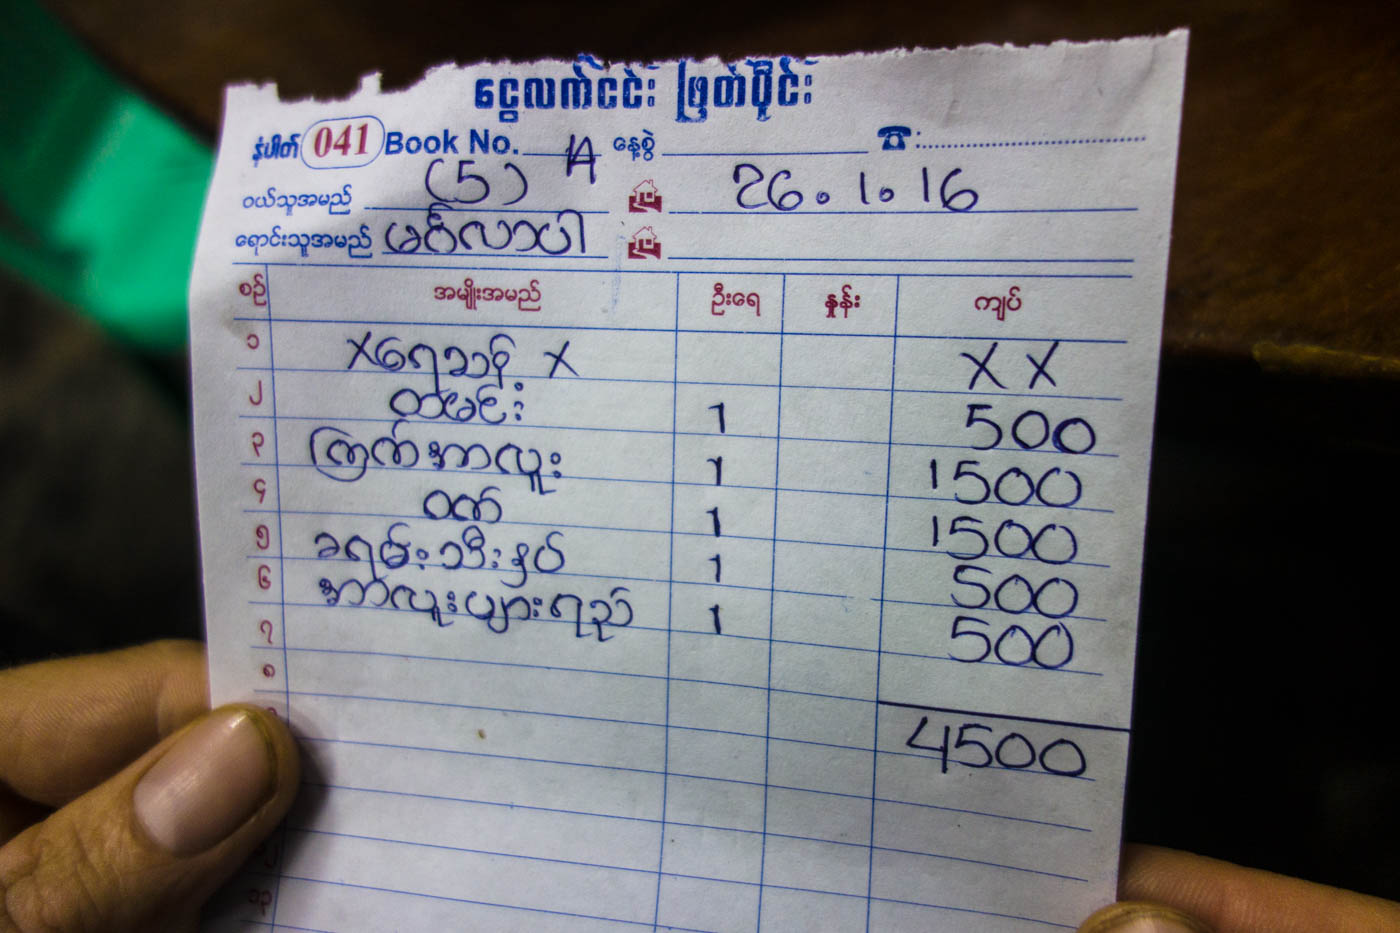 ငွေလက်ငင်း ဖြတ်ပိုင်း
နံပါတ် 041 Book No. နေ့စွဲ ☎:
ဝယ်သူအမည် (5) A 26.1.16
ရောင်းသူအမည် မင်္ဂလာပါ
စဉ် အမျိုးအမည် ဦးရေ နှုန်း ကျပ်
၁ X ရေသန့် X X X
၂ ထမင်း 1 500
၃ ကြက်အာလူး 1 1500
၄ ဝက် 1 1500
၅ ခရမ်းသီးနှပ် 1 500
၆ အာလူးပျားရည် 1 500
၇
၈
4500